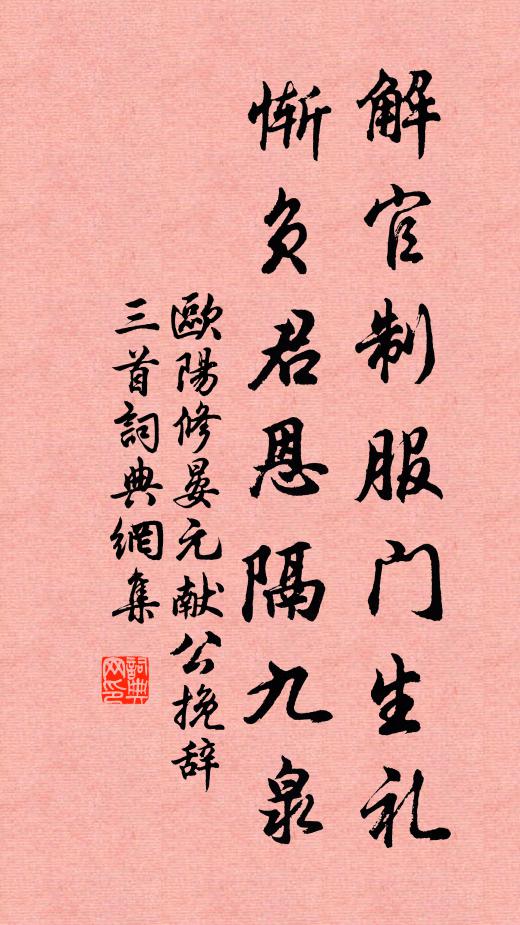 解官制服门生礼
惭负君恩隔九泉
歐陽修晏元献公挽辞
三首詞典網集
詞典
网印